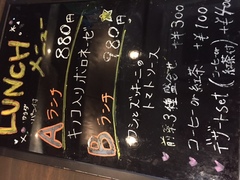 LUNCHメニュー
サラダ パン付
Aランチ 880円
キノコ入りボロネーゼ
Bランチ 980円
イワシとズッキーニの
トマトソース
前菜3種盛合せ +¥300
コーヒーor紅茶 +¥100
デザートset (コーヒーor紅茶付) +¥400